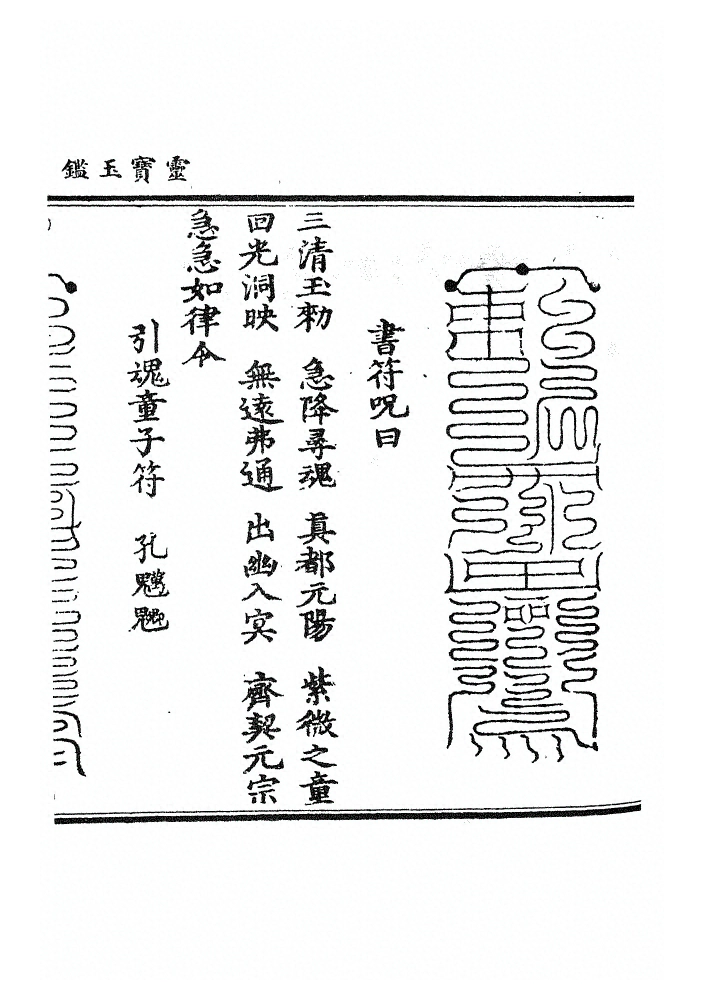 靈寶玉鑑
書符呪曰
三清玉勑 急降尋魂 真都元陽 紫微之童
回光洞映 無遠弗通 出幽入冥 齊契元宗
急急如律令
引魂童子符 孔